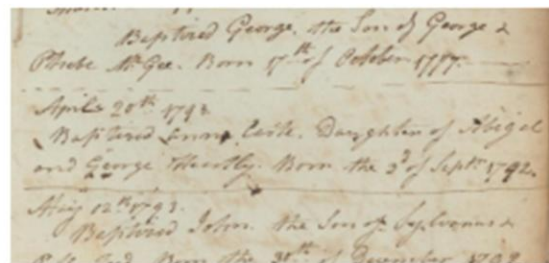 Baptized George, the Son of George &
Phebe McGee. Born 17th of October 1777.
April 20th 1793
Baptized Anna Daughter of Abigal
and George Born the 3d of Septr 1792.
May 12th 1793.
Baptized John the Son of Sylvanus &
Born the of December